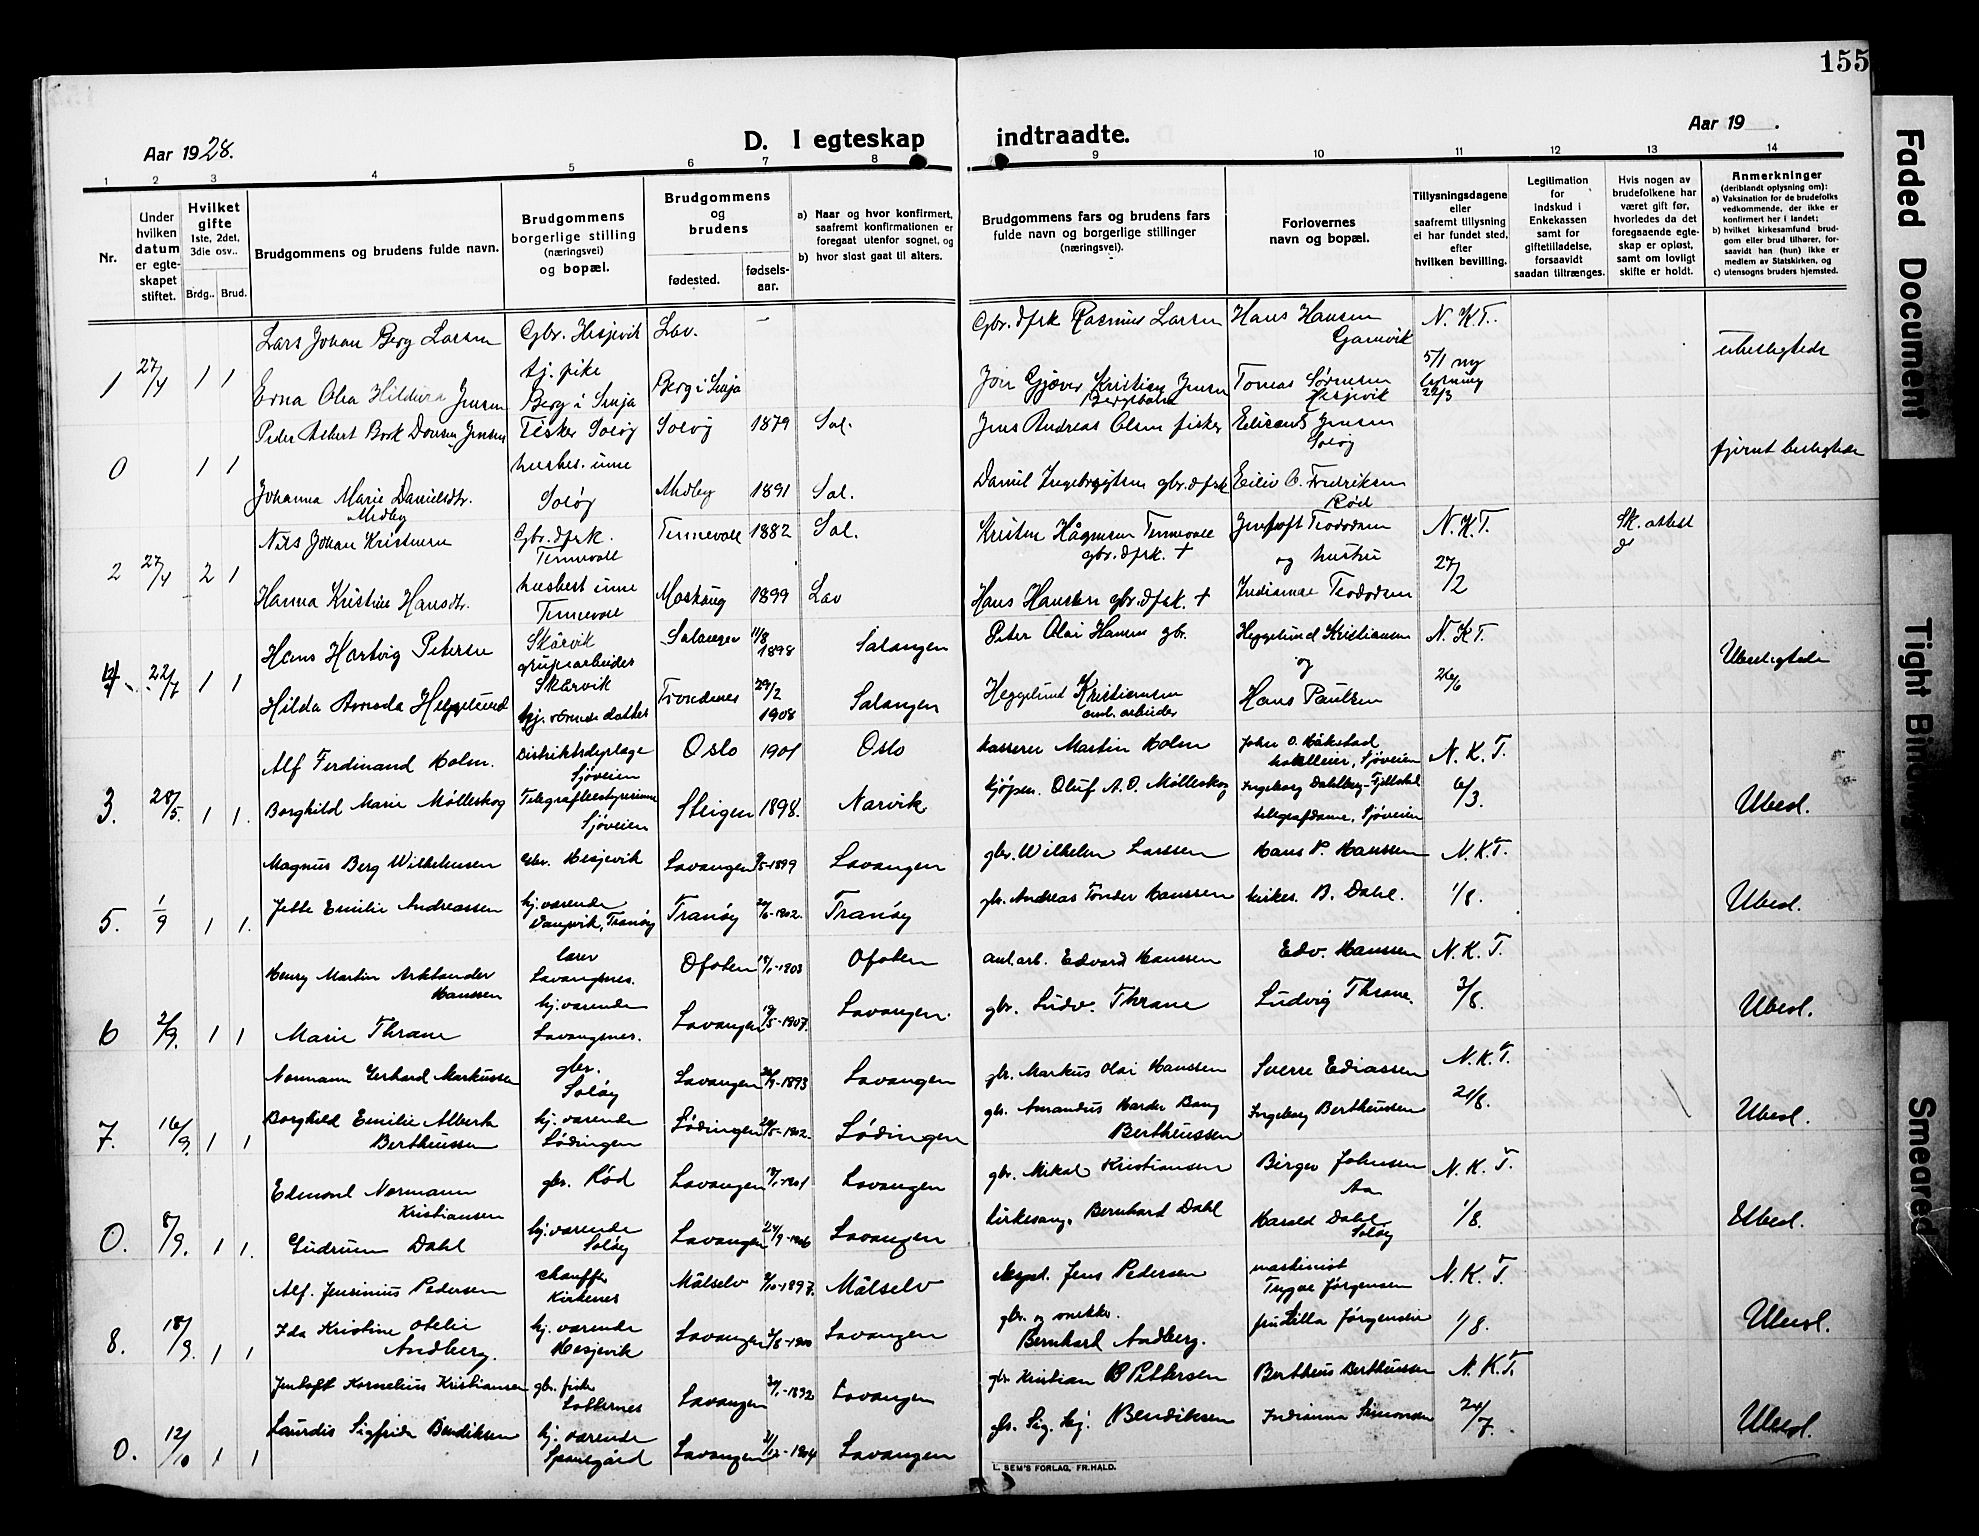 155
Aar 1928.
D. I egteskap indtraadte.
Aar 19 .
1 2 3 4 5 6 7 8 9 10 11 12 13 14
Nr.
Under hvilken datum er egte-skapet stiftet.
Hvilket gifte 1ste, 2det, 3die osv..
Brdg.. Brud.
Brudgommens og brudens fulde navn.
Brudgommens borgerlige stilling (næringsvei) og bopæl.
Brudgommens og brudens
fødested.
fødsels-aar.
a) Naar og hvor konfirmert, saafremt konfirmationen er foregaat utenfor sognet, og
b) hvor sidst gaat til alters.
Brudgommens fars og brudens fars fulde navn og borgerlige stillinger (næringsvei).
Forlovernes navn og bopæl.
Tillysningsdagene eller saafremt tillysning ei har fundet sted, efter hvilken bevilling.
Legitimation for indskud i Enkekassen samt for giftetilladelse, forsaavidt saadan tiltrænges.
Hvis nogen av brudefolkene har været gift før, hvorledes da det foregaaende egte-skap er opløst, samt om lovligt skifte er holdt.
Anmerkninger (deriblandt oplysning om):
a) Vaksination for de brudefolks vedkommende, der ikke er konfirmert her i landet;
b) hvilket kirkesamfund brud-gom eller brud tilhører, for-saavidt han (hun) ikke er medlem av Statskirken, og
c) utensogns bruders hjemsted.
Lars Johan Berg Larsen Gbr. Hesjevik Lav. – Gbr. dfsk Rasmus Larsen Hans Hansen Gamvik N. K T.
1 27/4 1 1 Erna Olea Hildura Jensen tj. pike Berg i Senja Berg i Senja Jon Gjæver Kristian Jensen Tomas Sørensen Hesjevik 5/1 ny lysning 22/3 ubeslegtede
Peder Albert Bork Jensen Fisker Soløy Soløy 1879 Sal. Jens Andreas Olsen fisker Jensen Soløy
0 1 1 Johanna Marie Danielsdtr. Medby husbest. inne Soløy Medby 1891 Sal. Daniel Ingebrigtsen gbr. dfsk Eiliv O. Fredriksen Rød fjernt beslegtede
Nils Johan Kristensen Gbr. dfsk. Tennevoll Tennevoll 1882 Sal. Kristen Hågensen Tennevoll gbr. dfsk. + Jentoft Teodorsen og hustru N. K T. Sk. attest
2 27/4 2 1 Hanna Kristine Hansdtr. husbest inne Tennevoll 1899 Lav Hans Hansen gbr. dfsk. + Indianna Teodorsen 27/2
Hans Hartvig Petersen Skårvik grubearbeider Salangen 11/8 1898 Salangen Peter Olai Hansen gbr. Heggelund Kristiansen og N. K T.
4 22/7 1 1 Hilda Amanda Heggelund Skårvik hj. værende datter Trondenes 29/2 1908 Salangen Heggelund Kristiansen anl. arbeider Hans Paulsen 26/6 Ubeslegtede
Alf Ferdinand Holm. Distriktsdyrlæge Sjøveien Oslo 1901 Oslo kasserer Martin Holm John O. Håkstad hotelleier, Sjøveien N. K. T.
3. 28/5. 1 1. Borghild Marie Mølleskog Telegrafbestyrerinne Sjøveien Steigen 1898. Narvik kjøpm. Oluf A. O. Mølleskog Ingeborg Dahlberg-Fjelldal telegrafdame, Sjøveien 6/3. Ubesl.
Magnus Berg Wilhelmsen Gbr. Hesjevik Lavangen 9/5-1899 Lavangen gbr. Wilhelm Larssen Hans P. Hanssen N. K. T.
5. 1/9 1 1. Jette Emilie Andreassen hj. værende Vangsvik, Tranøy Tranøy 20/6-1902. Tranøy gbr. Andreas Tønder Hanssen kirkes. B. Dahl. 1/8. Ubesl.
Henry Martin Arktander Hanssen lærer Lavangsnes. Ofoten 18/1-1903 Ofoten anl. arb. Edvard Hanssen Edv. Hanssen N. K. T.
6 2/9. 1 1 Marie Thrane hj. værende Lavangsnes. Lavangen 19/5-1907. Lavangen. gbr. Ludv. Thrane Ludvig Thrane. 3/8. Ubesl.
Normann Gerhard Markussen gbr. Soløy Lavangen 1893 Lavangen gbr. Markus Olai Hanssen Sverre Ediassen N. K. T.
7. 16/9. 1 1 Borghild Emilie Alberta Bertheussen hj. værende Lødingen Lødingen 20/5-1902. Lødingen gbr. Amandus Harder Bang Bertheussen Ingeborg Bertheussen 21/8. Ubesl.
Edmond Normann Kristiansen gbr. Rød Lavangen 1901 Lavangen gbr. Mikal Kristiansen Birger Johnsen Aa N. K. T.
0. 8/9. 1 1. Gudrun Dahl hj. værende Soløy Lavangen 24/9-1906 Lavangen kirkesang. Bernhard Dahl Harald Dahl Soløy 1/8. Ubesl.
Alf. Jensinius Pedersen chauffør Kirkenes Målselv 9/10-1897. Målselv Jens Pedersen maskinist Trygve Jørgensen N. K. T.
8. 18/9. 1 1 Ida Kristine Otelie Andberg. hj. værende Hesjevik Lavangen 1900 Lavangen gbr. og snekker. Bernhard Andberg. fru Lilla Jørgensen 1/8. Ubesl.
Jentoft Kornelius Kristiansen gbr. fisk Løktenes Lavangen 1892 Lavangen gbr Kristian B Pettersen Bertheus Bertheussen N. K. T.
0. 12/10 1 1 Laurdis Sigfride Bendiksen hj. værende Spansgård Lavangen 21/12-1904 Lavangen gbr. Sig. Bendiksen Indianna Simonsen 24/7. Ubesl.
L. SEM'S FORLAG, FR.HALD.
Faded Document
Tight Binding
Smeared